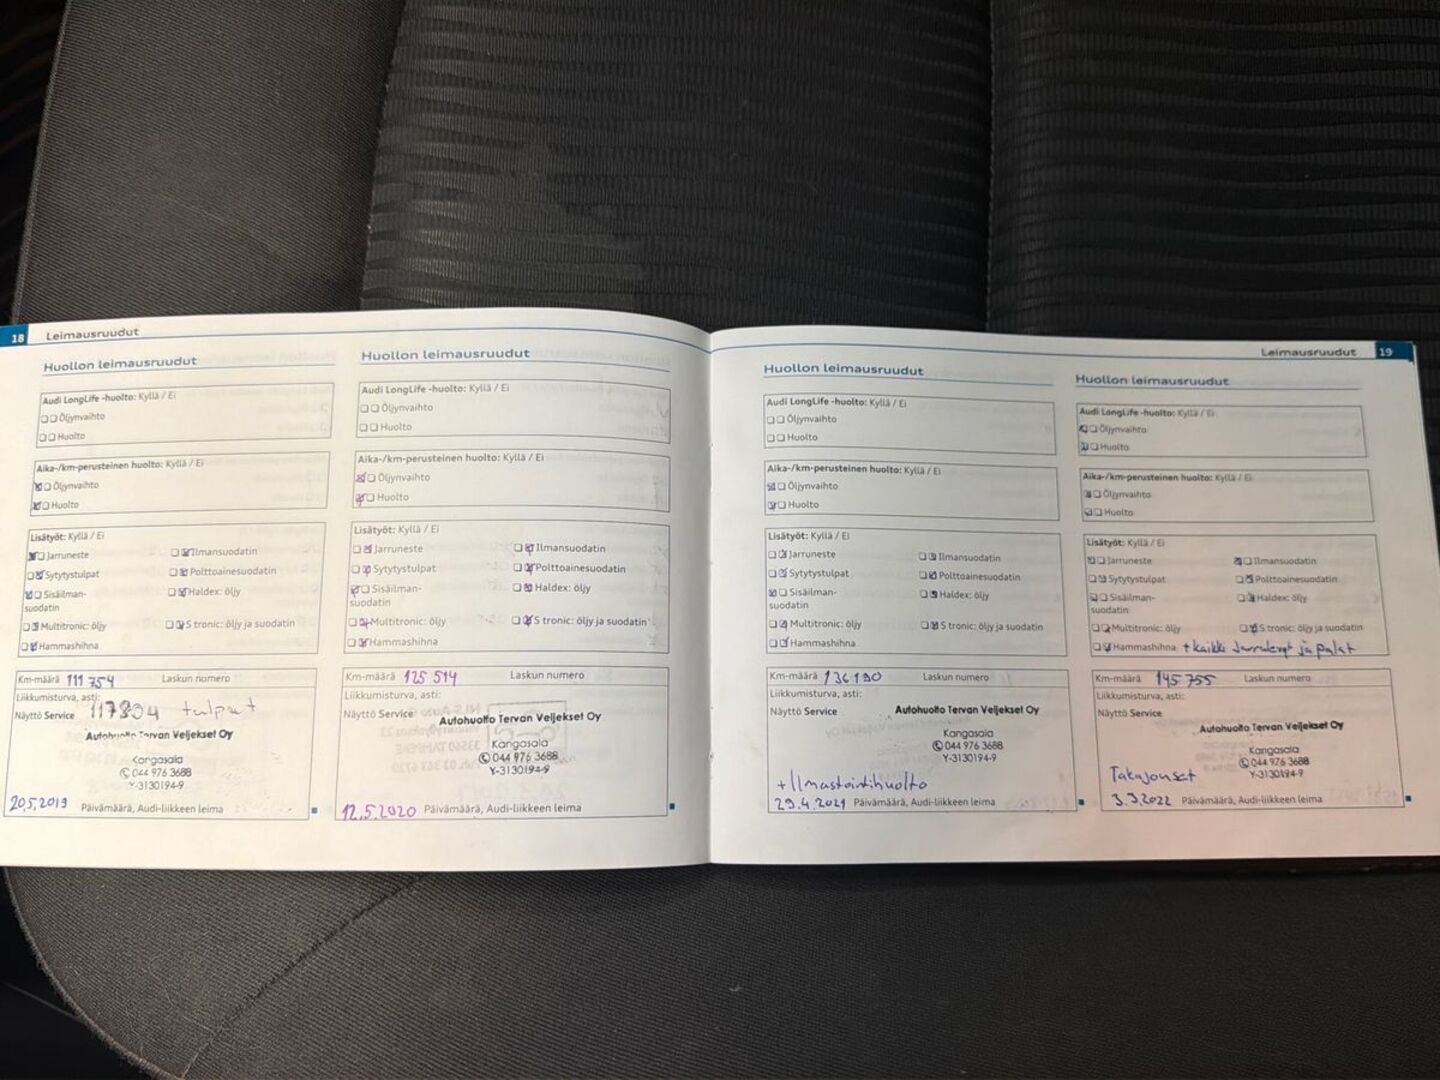 18 Leimausruudut
Huollon leimausruudut
Audi LongLife -huolto: Kyllä / Ei
Öljynvaihto
Huolto
Aika-/km-perusteinen huolto: Kyllä / Ei
Öljynvaihto
Huolto
Lisätyöt: Kyllä / Ei
Jarruneste
Ilmansuodatin
Sytytystulpat
Polttoainesuodatin
Sisäilman-
suodatin
Haldex: öljy
Multitronic: öljy
S tronic: öljy ja suodatin
Hammashihna
Km-määrä 111 754 Laskun numero
Liikkumisturva, asti:
Näyttö Service 117804 tulpat
Autohuolto Tervan Veljekset Oy
Kangasala
044 976 3688
Y-3130194-9
20.5.2019 Päivämäärä, Audi-liikkeen leima
Huollon leimausruudut
Audi LongLife -huolto: Kyllä / Ei
Öljynvaihto
Huolto
Aika-/km-perusteinen huolto: Kyllä / Ei
Öljynvaihto
Huolto
Lisätyöt: Kyllä / Ei
Jarruneste
Ilmansuodatin
Sytytystulpat
Polttoainesuodatin
Sisäilman-
suodatin
Haldex: öljy
Multitronic: öljy
S tronic: öljy ja suodatin
Hammashihna
Km-määrä 125 514 Laskun numero
Liikkumisturva, asti:
Näyttö Service
Autohuolto Tervan Veljekset Oy
Kangasala
044 976 3688
Y-3130194-9
12.5.2020 Päivämäärä, Audi-liikkeen leima
Leimausruudut 19
Huollon leimausruudut
Audi LongLife -huolto: Kyllä / Ei
Öljynvaihto
Huolto
Aika-/km-perusteinen huolto: Kyllä / Ei
Öljynvaihto
Huolto
Lisätyöt: Kyllä / Ei
Jarruneste
Ilmansuodatin
Sytytystulpat
Polttoainesuodatin
Sisäilman-
suodatin
Haldex: öljy
Multitronic: öljy
S tronic: öljy ja suodatin
Hammashihna
Km-määrä 136190 Laskun numero
Liikkumisturva, asti:
Näyttö Service
Autohuolto Tervan Veljekset Oy
Kangasala
044 976 3688
Y-3130194-9
+ Ilmastointihuolto
29.4.2021 Päivämäärä, Audi-liikkeen leima
Huollon leimausruudut
Audi LongLife -huolto: Kyllä / Ei
Öljynvaihto
Huolto
Aika-/km-perusteinen huolto: Kyllä / Ei
Öljynvaihto
Huolto
Lisätyöt: Kyllä / Ei
Jarruneste
Ilmansuodatin
Sytytystulpat
Polttoainesuodatin
Sisäilman-
suodatin
Haldex: öljy
Multitronic: öljy
S tronic: öljy ja suodatin
Hammashihna + kaikki Jarrulevyt ja palat
Km-määrä 145 755 Laskun numero
Liikkumisturva, asti:
Näyttö Service
Autohuolto Tervan Veljekset Oy
Kangasala
044 976 3688
Y-3130194-9
Takajouset
3.3.2022 Päivämäärä, Audi-liikkeen leima